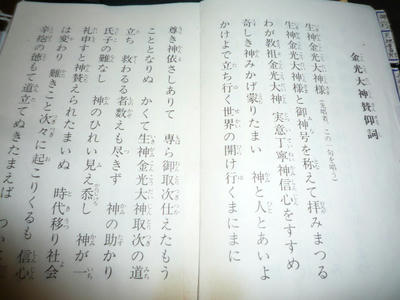 金光大神賛仰詞
生神金光大神様（先唱者、この一句を唱う）
生神金光大神様と御神号を称えて拝みまつる
わが教祖金光大神　実意丁寧神信心をすすめ
奇しき神みかげ蒙りたまい　神と人とあいよ
かけよで立ち行く世界の開け行くまにまに
尊き神依さしありて　専ら御取次仕えたもう
こととなりぬ　かくて生神金光大神取次の道
立ち　救わるる者数えも尽きず　神の助かり
氏子の難なし　神のひれい見え忝し　神が一
礼申すと神賛えられたまいぬ　時代移り社会
は変わり　難きこと次々に起こりくるも　信心
辛抱の徳もて道立てぬきたまえば